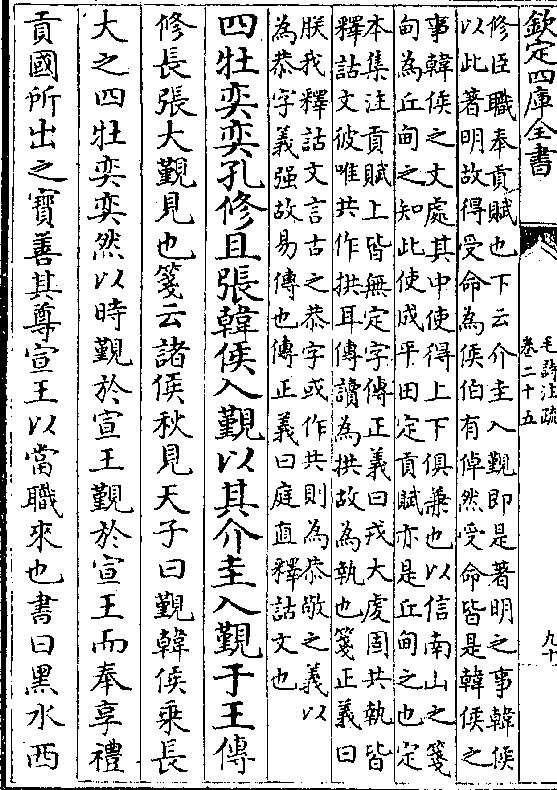 欽定四庫全書
毛詩注疏
卷二十五
九十
修臣職奉貢賦也下云介圭入覲即是著明之事韓侯
以此著明故得受命為侯伯有倬然受命皆是韓侯之
事韓侯之文處其中使得上下俱兼也以信南山之箋
甸為丘甸之知此使成平田定貢賦亦是丘甸之也定
本集注貢賦上皆無定字傳正義曰戎大虔固共執皆
釋詁文彼唯共作拱耳傳讀為拱故為執也箋正義曰
朕我釋詁文言古之恭字或作共則為恭敬之義以
為恭字義强故易傳也傳正義曰庭直釋詁文也
四牡奕奕孔修且張韓侯入覲以其介圭入覲于王傳
修長張大覲見也箋云諸侯秋見天子曰覲韓侯乗長
大之四牡奕奕然以時覲於宣王覲於宣王而奉享禮
貢國所出之寶善其尊宣王以當職來也書曰黑水西